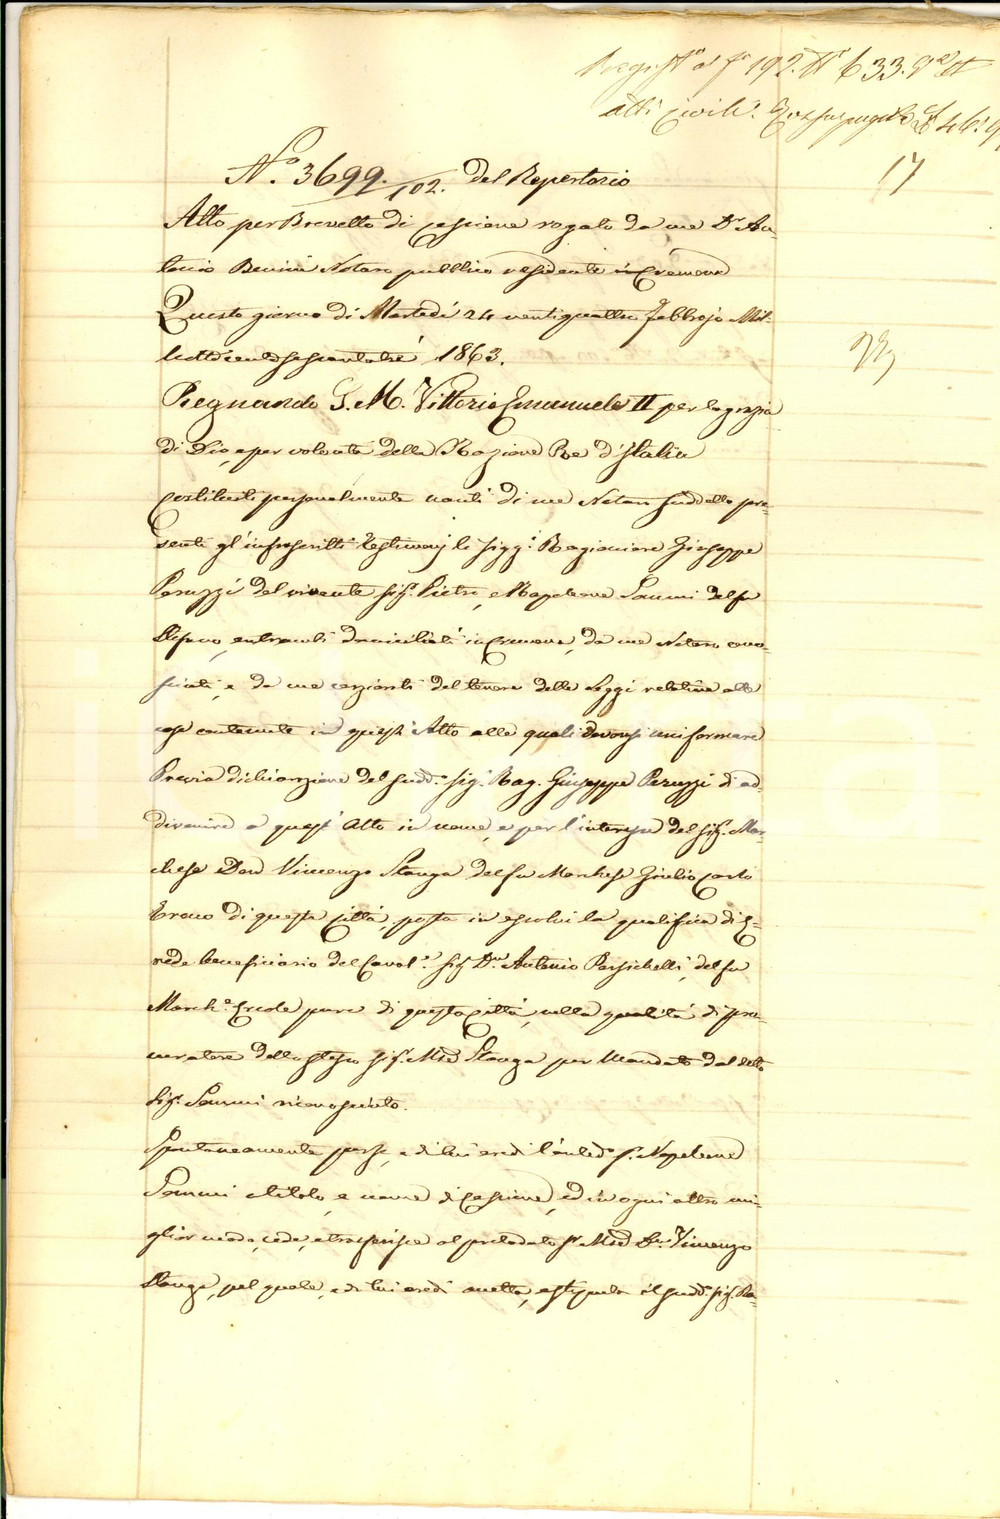 Regist° al f° 192. N° 633.
atti civili.
17
N.° 3699./102. del Repertorio
Atto per Brevetto di cessione rogato da me D.r An-
tonio Benini Notaro pubblico residente in Cremona
Questo giorno di Martedì 24 ventiquattro Febbrajo Mil-
lottocentosessantatrè 1863.
Regnando S. M. Vittorio Emanuele II per la grazia
di Dio, e per volontà della Nazione Re d'Italia
Costituiti personalmente nanti di me Notaro suddetto pre-
senti gl'infrascritti testimonj li Sigg.i Ragioniere Giuseppe
Peruzzi del vivente Sig.r Pietro, e Napoleone Sommi del fu
Stefano, entrambi domiciliati in Cremona, da me Notaro cono-
sciuti, e da me cerziorati del tenore delle Leggi relative alle
cose contenute in quest'Atto alle quali devonsi uniformare
Previa dichiarazione del sudd.° Sig. Rag. Giuseppe Peruzzi di ad-
divenire a quest'Atto in nome, e per l'interesse del Sig.r Mar-
chese Don Vincenzo Stanga del fu Marchese Giulio Carlo
di questa Città, posta in essolui la qualifica di E-
rede beneficiario del Caval.e Sig.r D.n Antonio Persichelli, del fu
March.e Ercole pure di questa città, nella qualità di pro-
curatore dello stesso Sig.r M.se Stanga per Mandato dal detto
Sig.r Sommi riconosciuto.
Spontaneamente per se, e di lui eredi l'anted.° S.r Napoleone
Sommi a titolo, e nome di Cessione, ed in ogni altro mi-
glior modo, cede, e trasferisce al prelodato S.r M.se D.n Vincenzo
Stanga, pel quale, e di lui eredi accetta, e stipula il sudd.° Sig.r Ra-